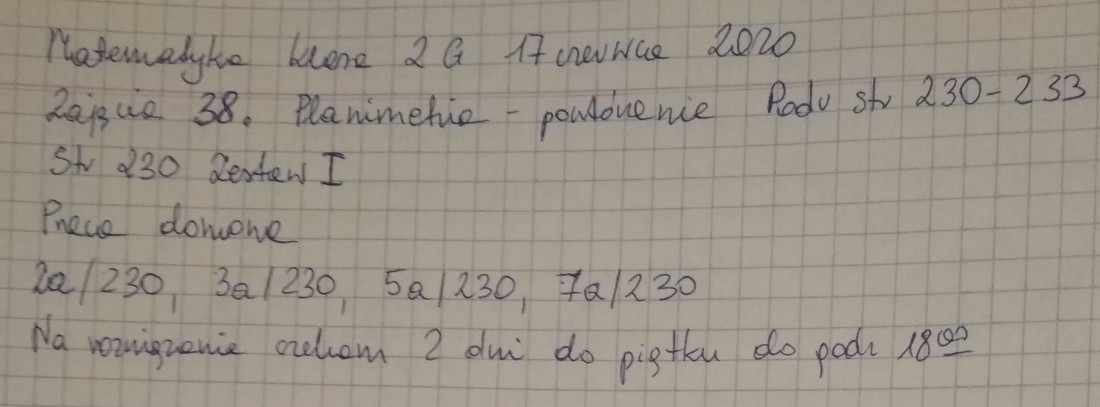 Matematyka klasa 2 G 17 czerwca 2020
Zajęcia 38. Planimetria - powtórzenie Podr str 230-233
Str 230 Zestaw I
Praca domowa
2a/230, 3a/230, 5a/230, 7a/230
Na rozwiązania czekam 2 dni do piątku do godz 18 00